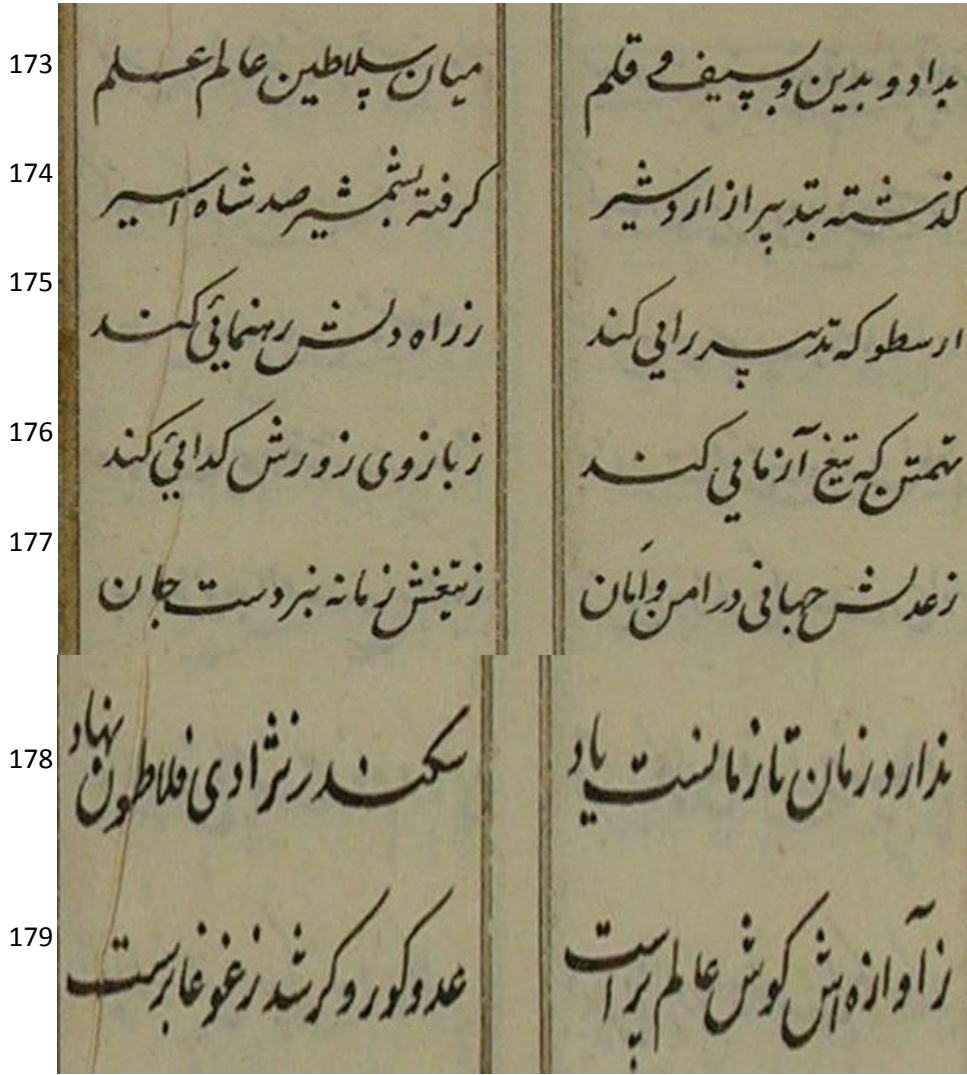 173 بداد و بدین و بسیف و قلم میان سلاطین عالم علم
174 کذشته بتدبیر از اردشیر کرفته بشمشیر صد شاه اسیر
175 ارسطو که تدبیر رایی کند ز راه دلش رهنمائی کند
176 تهمتن که تیغ آزمایی کند ز بازوی زورش کدائی کند
177 ز عدلش جهانی در امن و اَمان ز تیغش زمانه بزدست جان
178 ندارد زمان تا زمانست یاد سکندر نژادی فلاطون نهاد
179 ز آوازه‌اش کوش عالم پر است عدو کور و کر شد ز غوغا برست